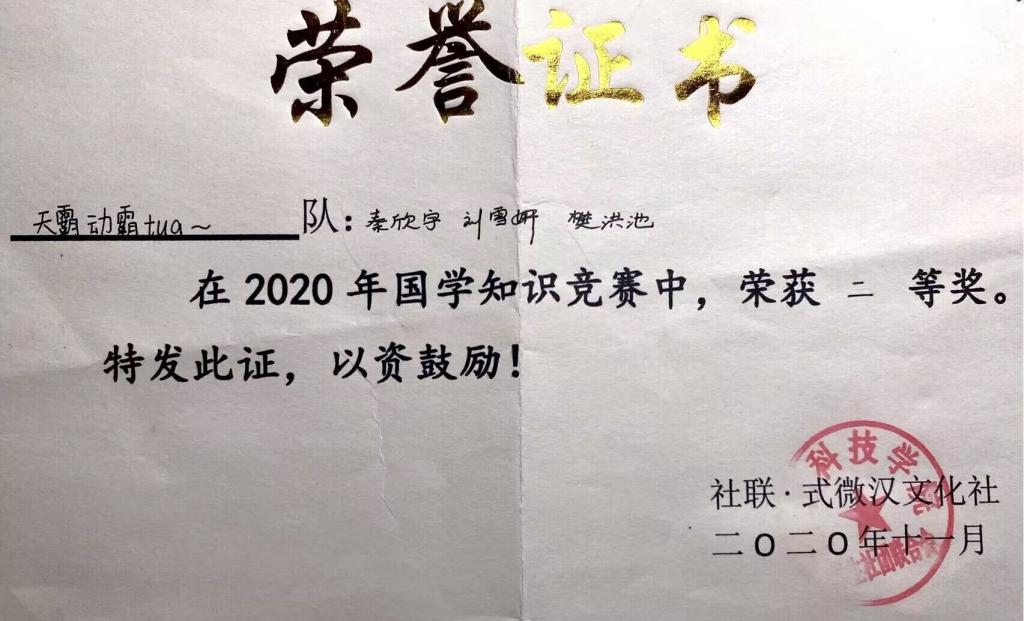 荣誉证书
天霸动霸tua~ 队：秦欣宇 刘雪妍 樊洪池
在2020年国学知识竞赛中，荣获 二 等奖。
特发此证，以资鼓励！
科技学院
社联·式微汉文化社
二〇二〇年十一月
社团联合会